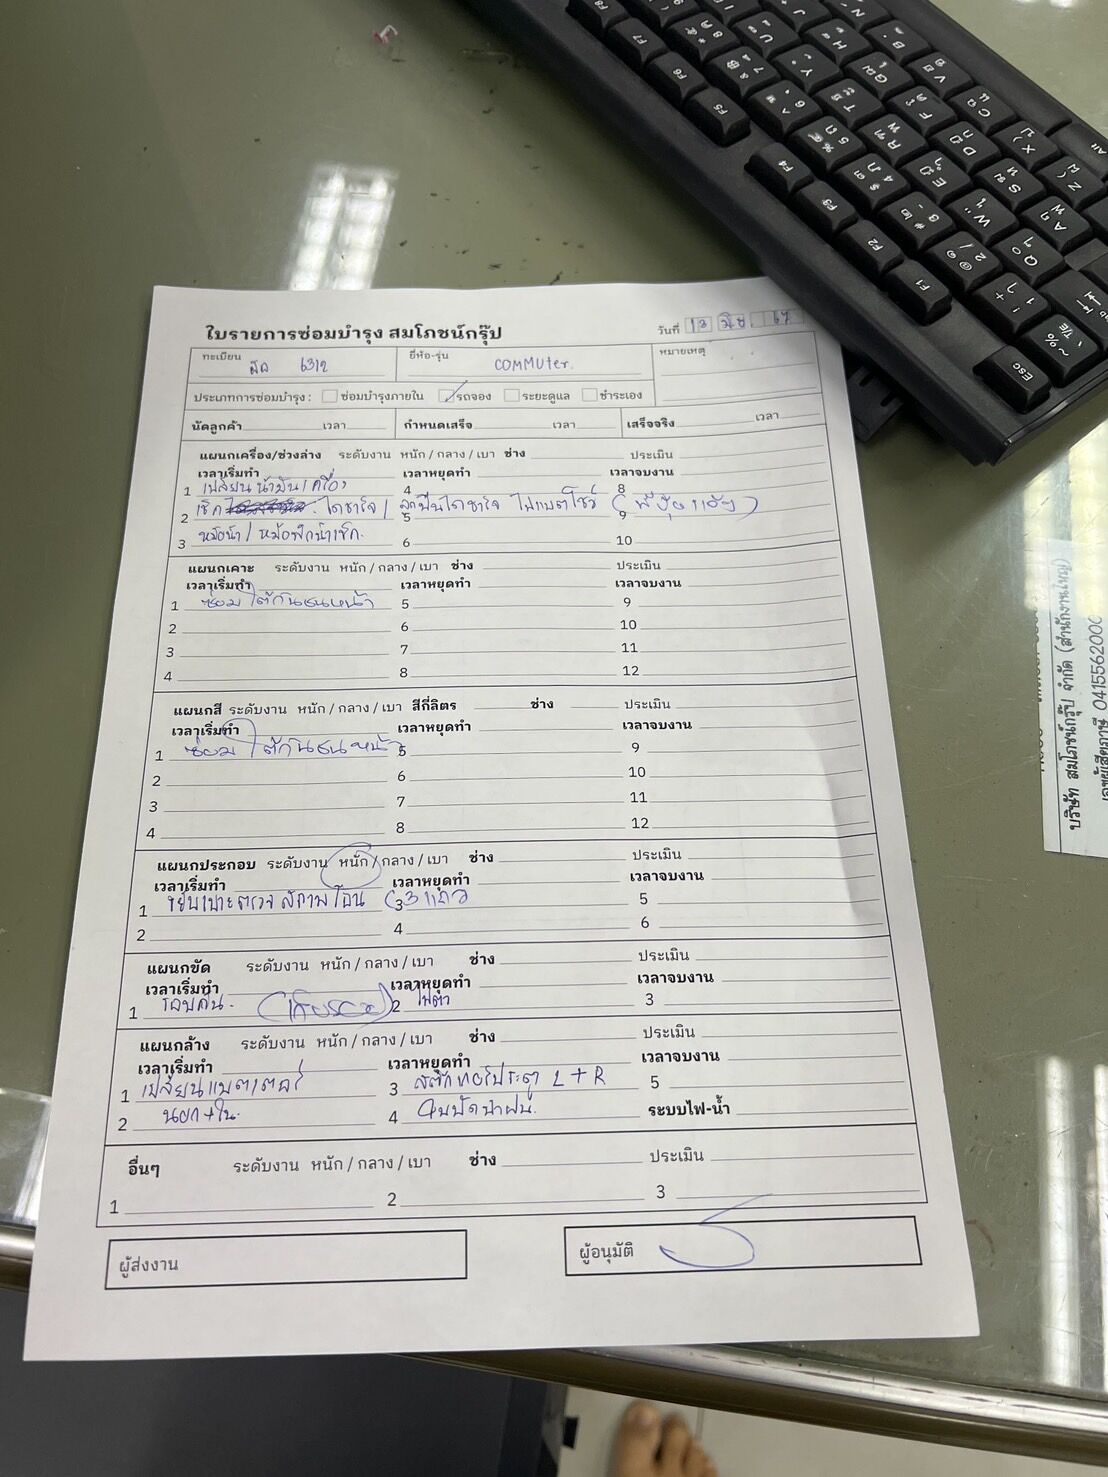 ใบรายการซ่อมบำรุง สมโภชน์กรุ๊ป
วันที่ 13 มิย. 67
ทะเบียน 6312 ยี่ห้อ-รุ่น COMMUter. หมายเหตุ
ประเภทการซ่อมบำรุง : ซ่อมบำรุงภายใน รถจอง ระยะดูแล ชำระเอง
นัดลูกค้า เวลา กำหนดเสร็จ เวลา เสร็จจริง เวลา
แผนกเครื่อง/ช่วงล่าง ระดับงาน หนัก / กลาง / เบา ช่าง ประเมิน
เวลาเริ่มทำ เวลาหยุดทำ เวลาจบงาน
1 เปลี่ยนน้ำมันเครื่อง 4 8
2 เช็ค ไดชาร์จ / ไดชาร์จ ไปแบตโชว์ 5 9
3 หม้อน้ำ / หม้อพักน้ำเช็ค. 6 10
แผนกเคาะ ระดับงาน หนัก / กลาง / เบา ช่าง ประเมิน
เวลาเริ่มทำ เวลาหยุดทำ เวลาจบงาน
1 ซ่อมใต้กันชนหน้า 5 9
2 6 10
3 7 11
4 8 12
แผนกสี ระดับงาน หนัก / กลาง / เบา สีกี่ลิตร ช่าง ประเมิน
เวลาเริ่มทำ เวลาหยุดทำ เวลาจบงาน
1 ซ่อมใต้กันชนหน้า 5 9
2 6 10
3 7 11
4 8 12
แผนกประกอบ ระดับงาน หนัก / กลาง / เบา ช่าง ประเมิน
เวลาเริ่มทำ เวลาหยุดทำ เวลาจบงาน
1 เบาะตรวจสภาพ 3 แถว 3 5
2 4 6
แผนกขัด ระดับงาน หนัก / กลาง / เบา ช่าง ประเมิน
เวลาเริ่มทำ เวลาหยุดทำ เวลาจบงาน
1 รอบคัน. 2 3
แผนกล้าง ระดับงาน หนัก / กลาง / เบา ช่าง ประเมิน
เวลาเริ่มทำ เวลาหยุดทำ เวลาจบงาน
1 เปลี่ยนแบตเตอรี่ 3 สติกเกอร์ประตู L + R 5
2 นอก + ใน. 4 ใบปัดน้ำฝน. ระบบไฟ-น้ำ
อื่นๆ ระดับงาน หนัก / กลาง / เบา ช่าง ประเมิน
1 2 3
ผู้ส่งงาน ผู้อนุมัติ
บริษัท สมโภชน์กรุ๊ป จำกัด (สำนักงานใหญ่)
Esc F1 F2 F3 F4 F5 F6 F7 F8